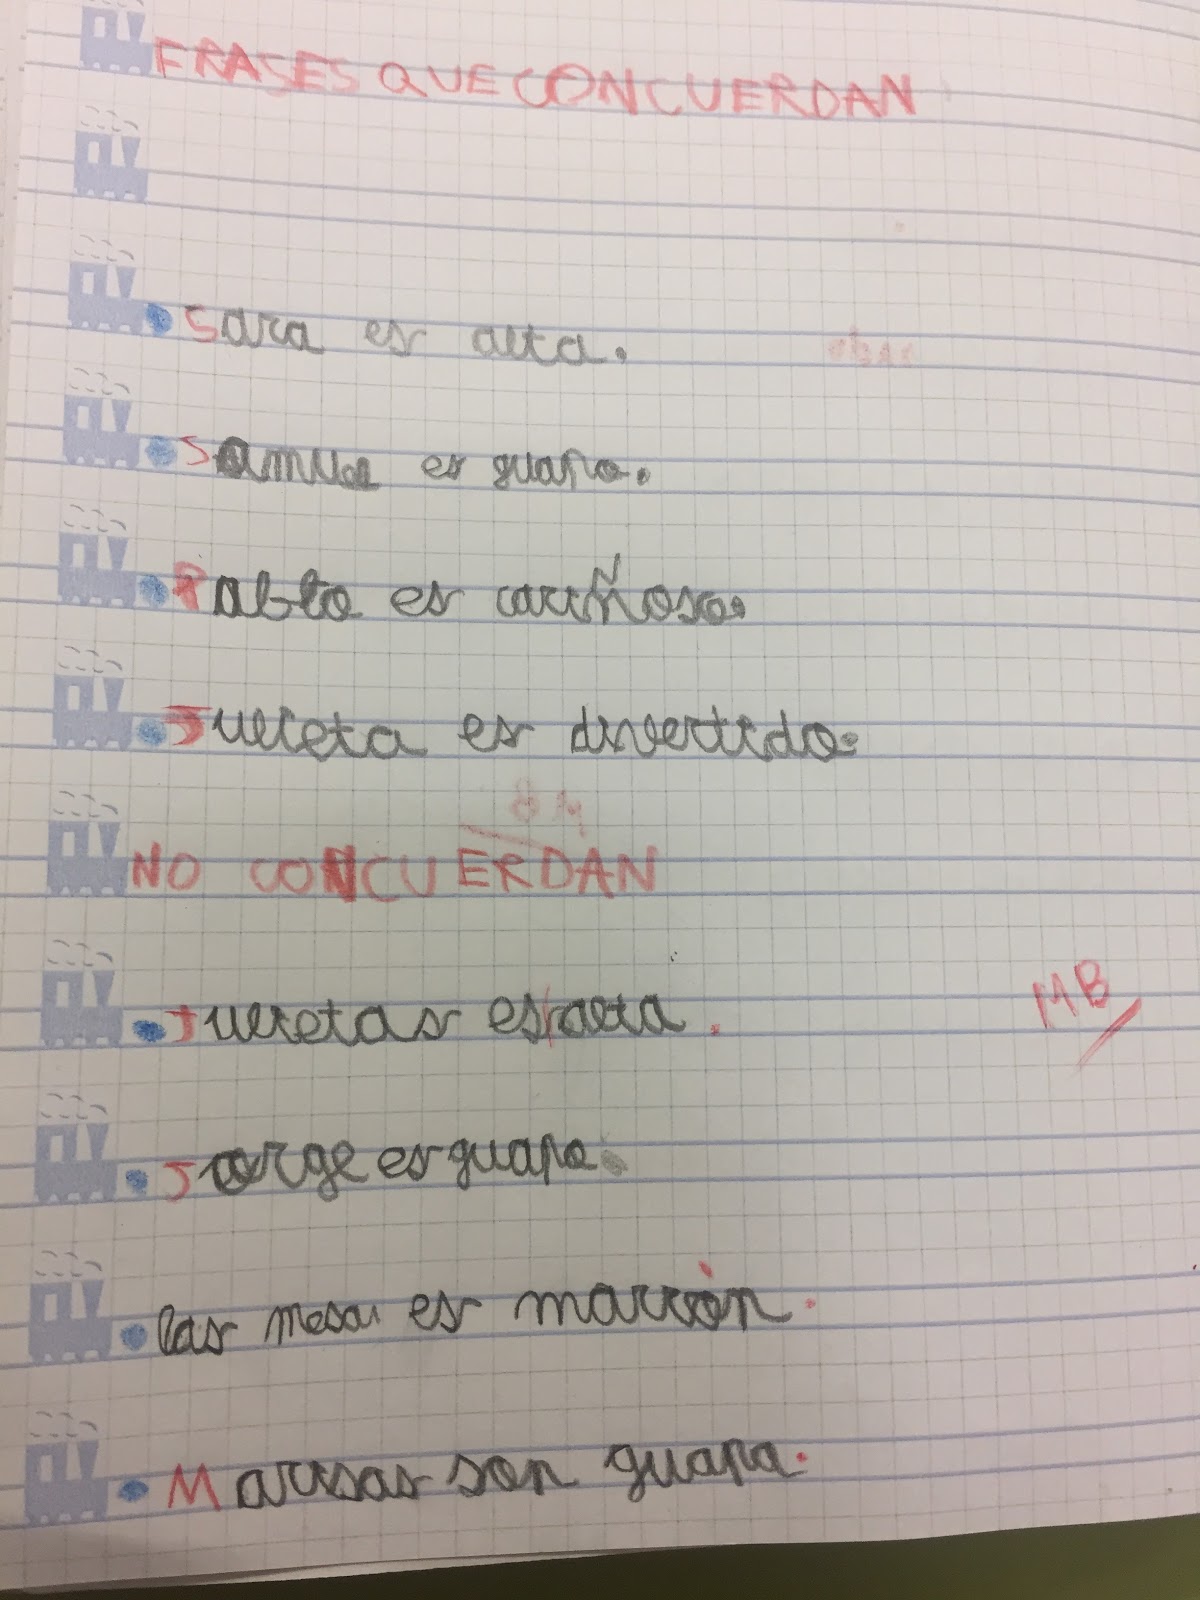 FRASES QUE CONCUERDAN
Sara es alta.
Samuel es guapo.
Pablo es cariñoso.
Julieta es divertido.
NO CONCUERDAN
Julietas es alta.
MB
Jorge es guapa.
las mesas es marrón.
Marisas son guapa.